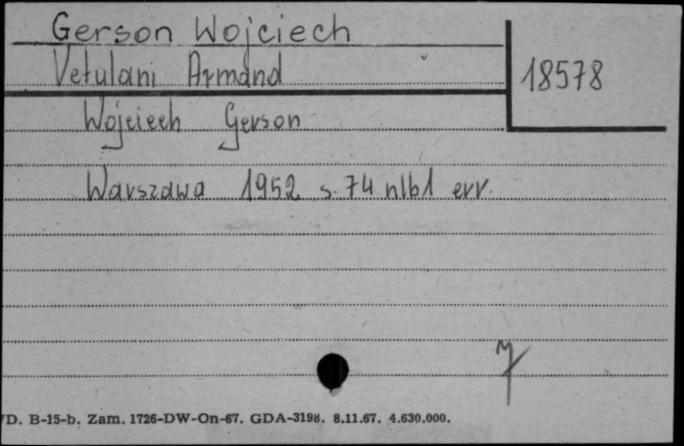 Gerson Wojciech
Vetulani Armand
18578
Wojciech Gerson
Warszawa 1952 s. 74 nlb1 err.
D. B-15-b. Zam. 1726-DW-On-67. GDA-3198. 8.11.67. 4.630.000.